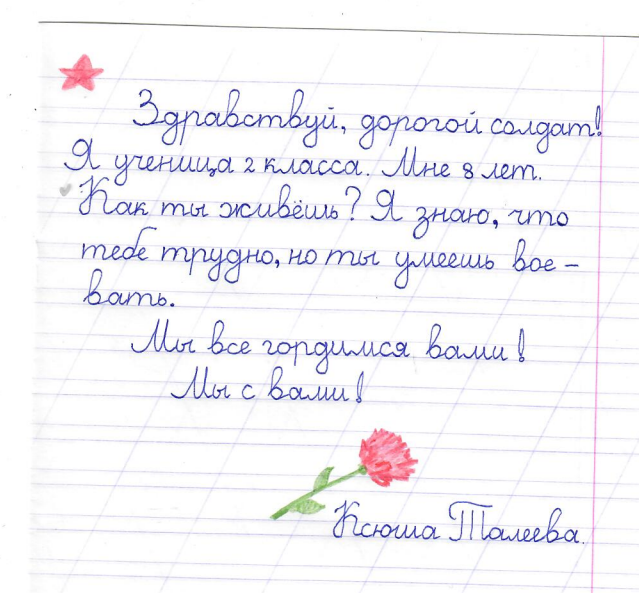 Здравствуй, дорогой солдат!
Я ученица 2 класса. Мне 8 лет.
Как ты живёшь? Я знаю, что
тебе трудно, но ты умеешь вое-
вать.
Мы все гордимся вами!
Мы с вами!
Ксюша Талеева.